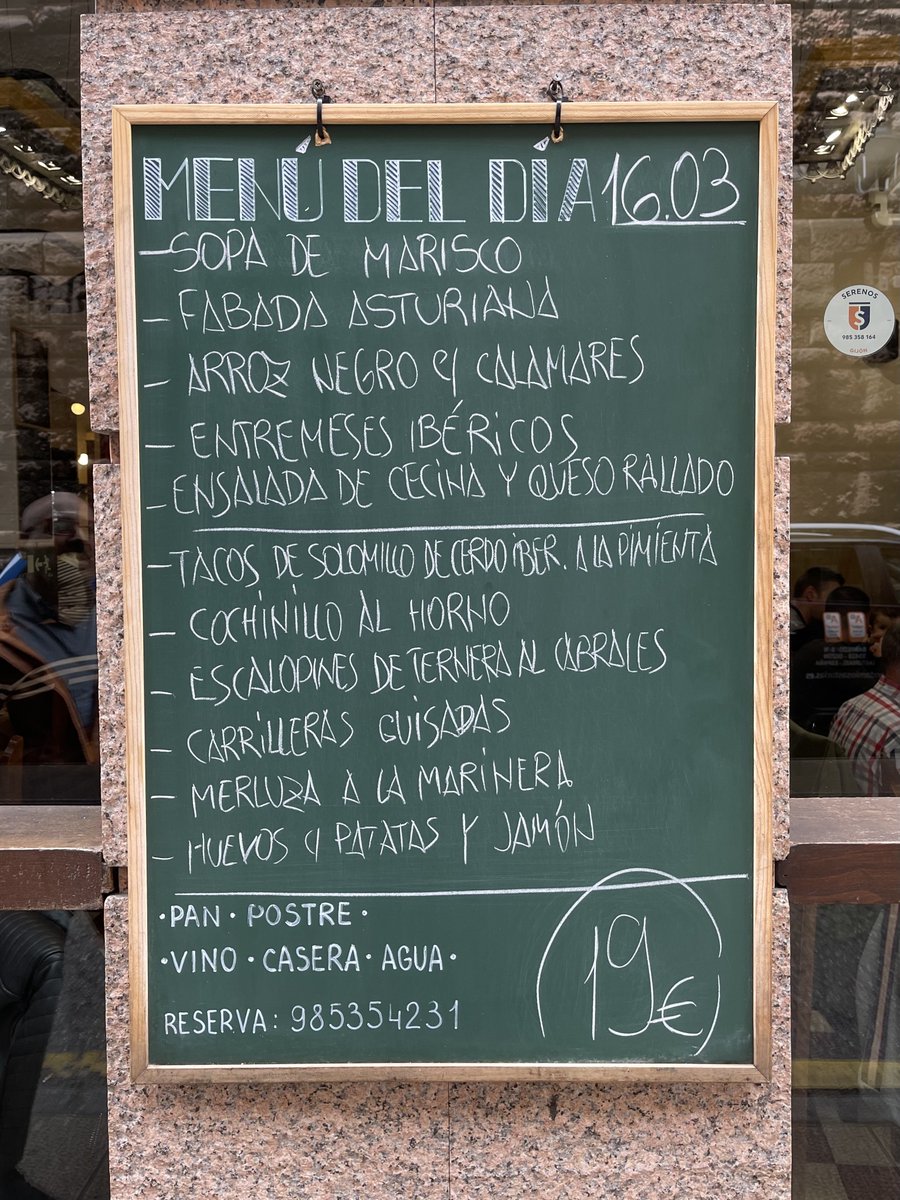 MENÚ DEL DÍA 16.03
- SOPA DE MARISCO
- FABADA ASTURIANA
- ARROZ NEGRO C/ CALAMARES
- ENTREMESES IBÉRICOS
- ENSALADA DE CECINA Y QUESO RALLADO
- TACOS DE SOLOMILLO DE CERDO IBER. A LA PIMIENTA
- COCHINILLO AL HORNO
- ESCALOPINES DE TERNERA AL CABRALES
- CARRILLERAS GUISADAS
- MERLUZA A LA MARINERA
- HUEVOS C/ PATATAS Y JAMÓN
· PAN · POSTRE ·
· VINO · CASERA · AGUA ·
RESERVA: 985354231
19€
SERENOS
S
985 358 164
GIJÓN